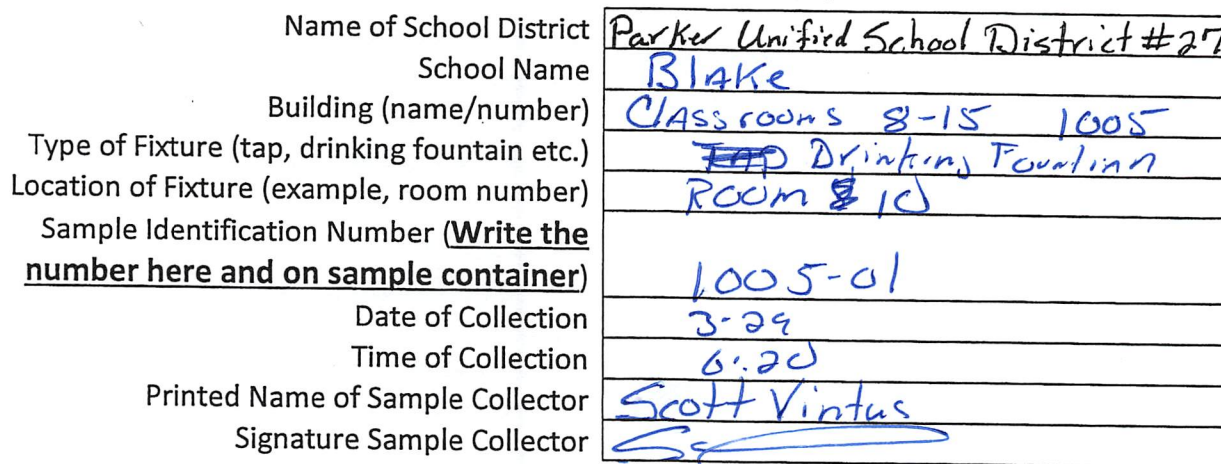 Name of School District Parker Unified School District #27
School Name Blake
Building (name/number) Classrooms 8-15 1005
Type of Fixture (tap, drinking fountain etc.) Drinking Fountian
Location of Fixture (example, room number) Room 10
Sample Identification Number (Write the
number here and on sample container) 1005-01
Date of Collection 3-29
Time of Collection 6:20
Printed Name of Sample Collector Scott Vintus
Signature Sample Collector